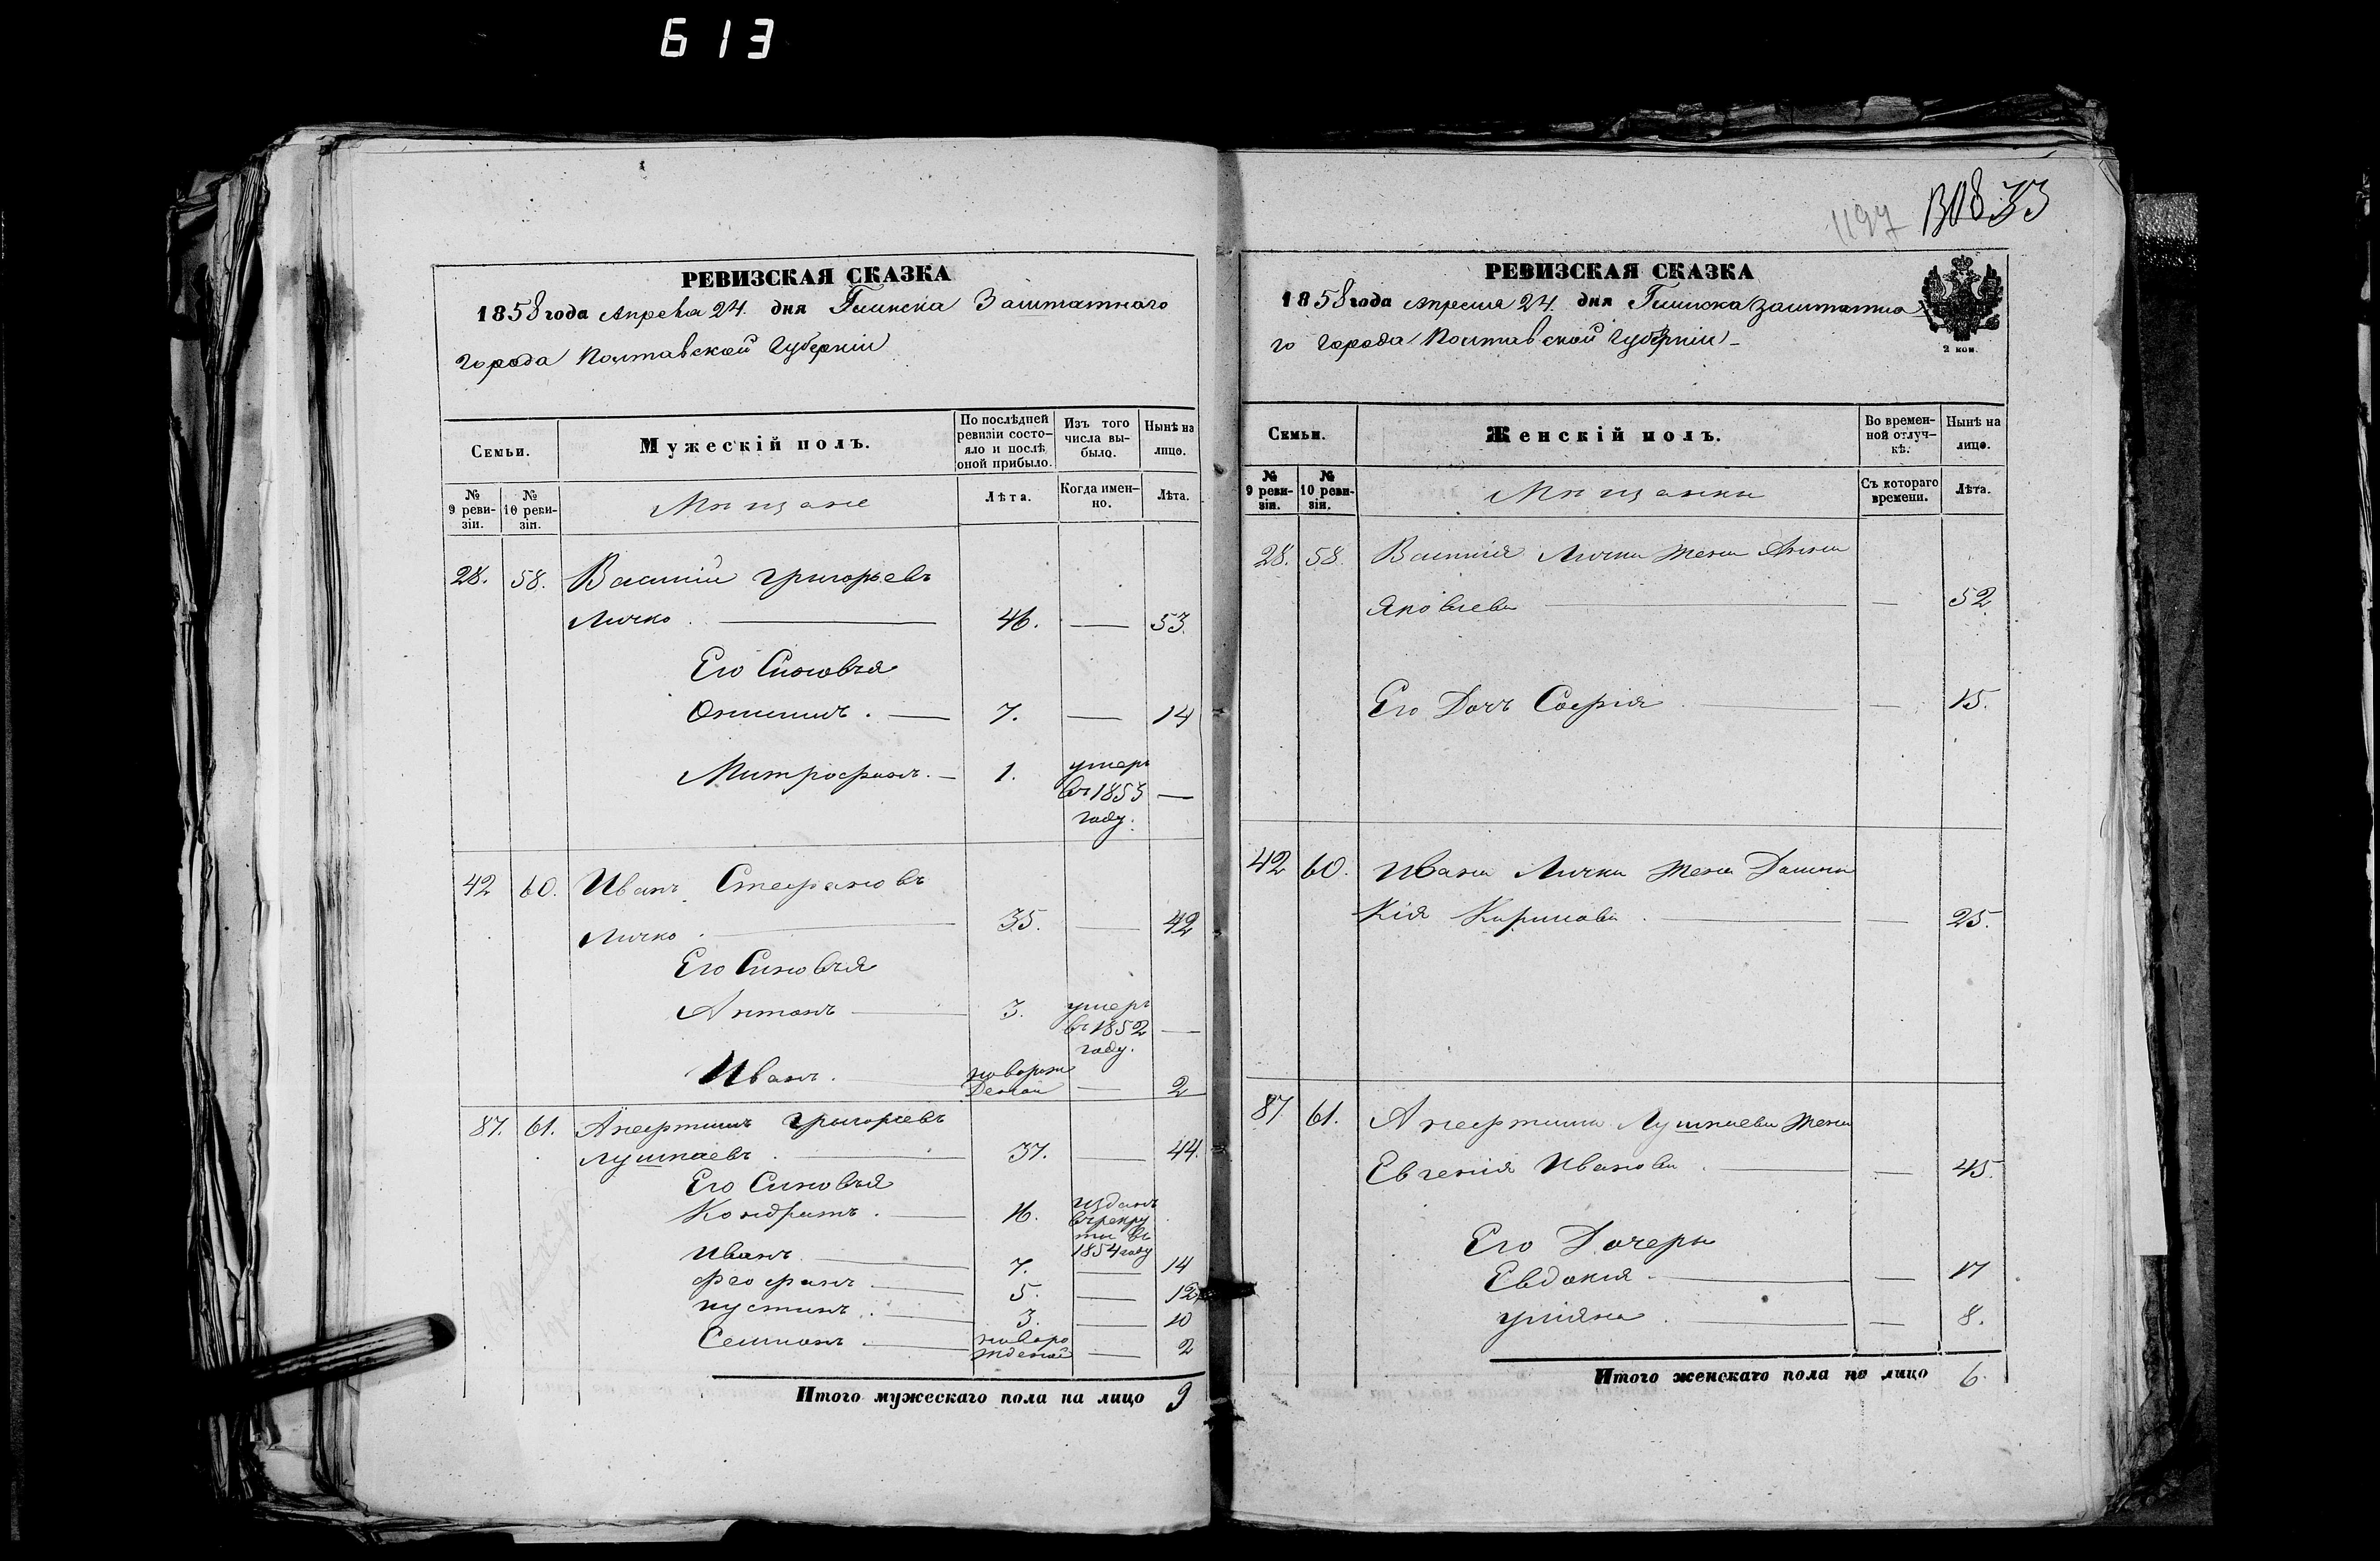 613
1197
33
РЕВИЗСКАЯ СКАЗКА
1858 года Апреля 24. дня Глинска Заштатнаго
Города Полтавской Губерніи
Семьи.
Мужескій полъ.
По послѣдней ревизіи состо-
яло и послѣ
оной прибыло.
Изъ того
числа вы-
было.
Нынѣ на
лице.
№
9 реви-
зіи.
№
10 реви-
зіи.
Мѣщане
Лѣта.
Когда имен-
но.
Лѣта.
28. 58. Василій Григорьевъ
Личко. 46. — 53.
Его Сыновья
Онисимъ. — 7. — 14
Митрофанъ. — 1. умеръ
въ 1853 —
году.
42 60. Иванъ Стефановъ
Личко. 35. — 42
Его Сыновья
Антонъ — 3. умеръ
въ 1852 —
году.
Иванъ. новорож
деной — 2
87. 61. Анфтинъ Григорьевъ
Лушпаевъ. 37. — 44.
Его Сыновья
Кондратъ. — 16. изданъ
въ рекру
ты въ
1854 году
Иванъ — 7. — 14
Феофанъ — 5. — 12
иустинъ. — 3. — 10
Семионъ. — новоро
жденой — 2
Итого мужескаго пола на лицо 9
РЕВИЗСКАЯ СКАЗКА
1858 года Апреля 24. дня Глинска заштатна
го Города Полтавской Губерніи
2 коп.
Семьи.
Женскій полъ.
Во времен-
ной отлуч-
кѣ.
Нынѣ на
лице.
№
9 реви-
зіи.
№
10 реви-
зіи.
Мѣщанки
Съ котораго
времени.
Лѣта.
28. 58. Василія Личка жена Анна
Яковлева — — 52
Его Дочъ Софія — — 15.
42 60. Ивана Личка жена Домни
кія Кирилова. — — 25.
87 61. Анфтина Лушпаева жена
Евгенія Иванова. — — 45.
Его Дочеры
Евдокия. — — 17
улияна. — — 8.
Итого женскаго пола на лицо 6.